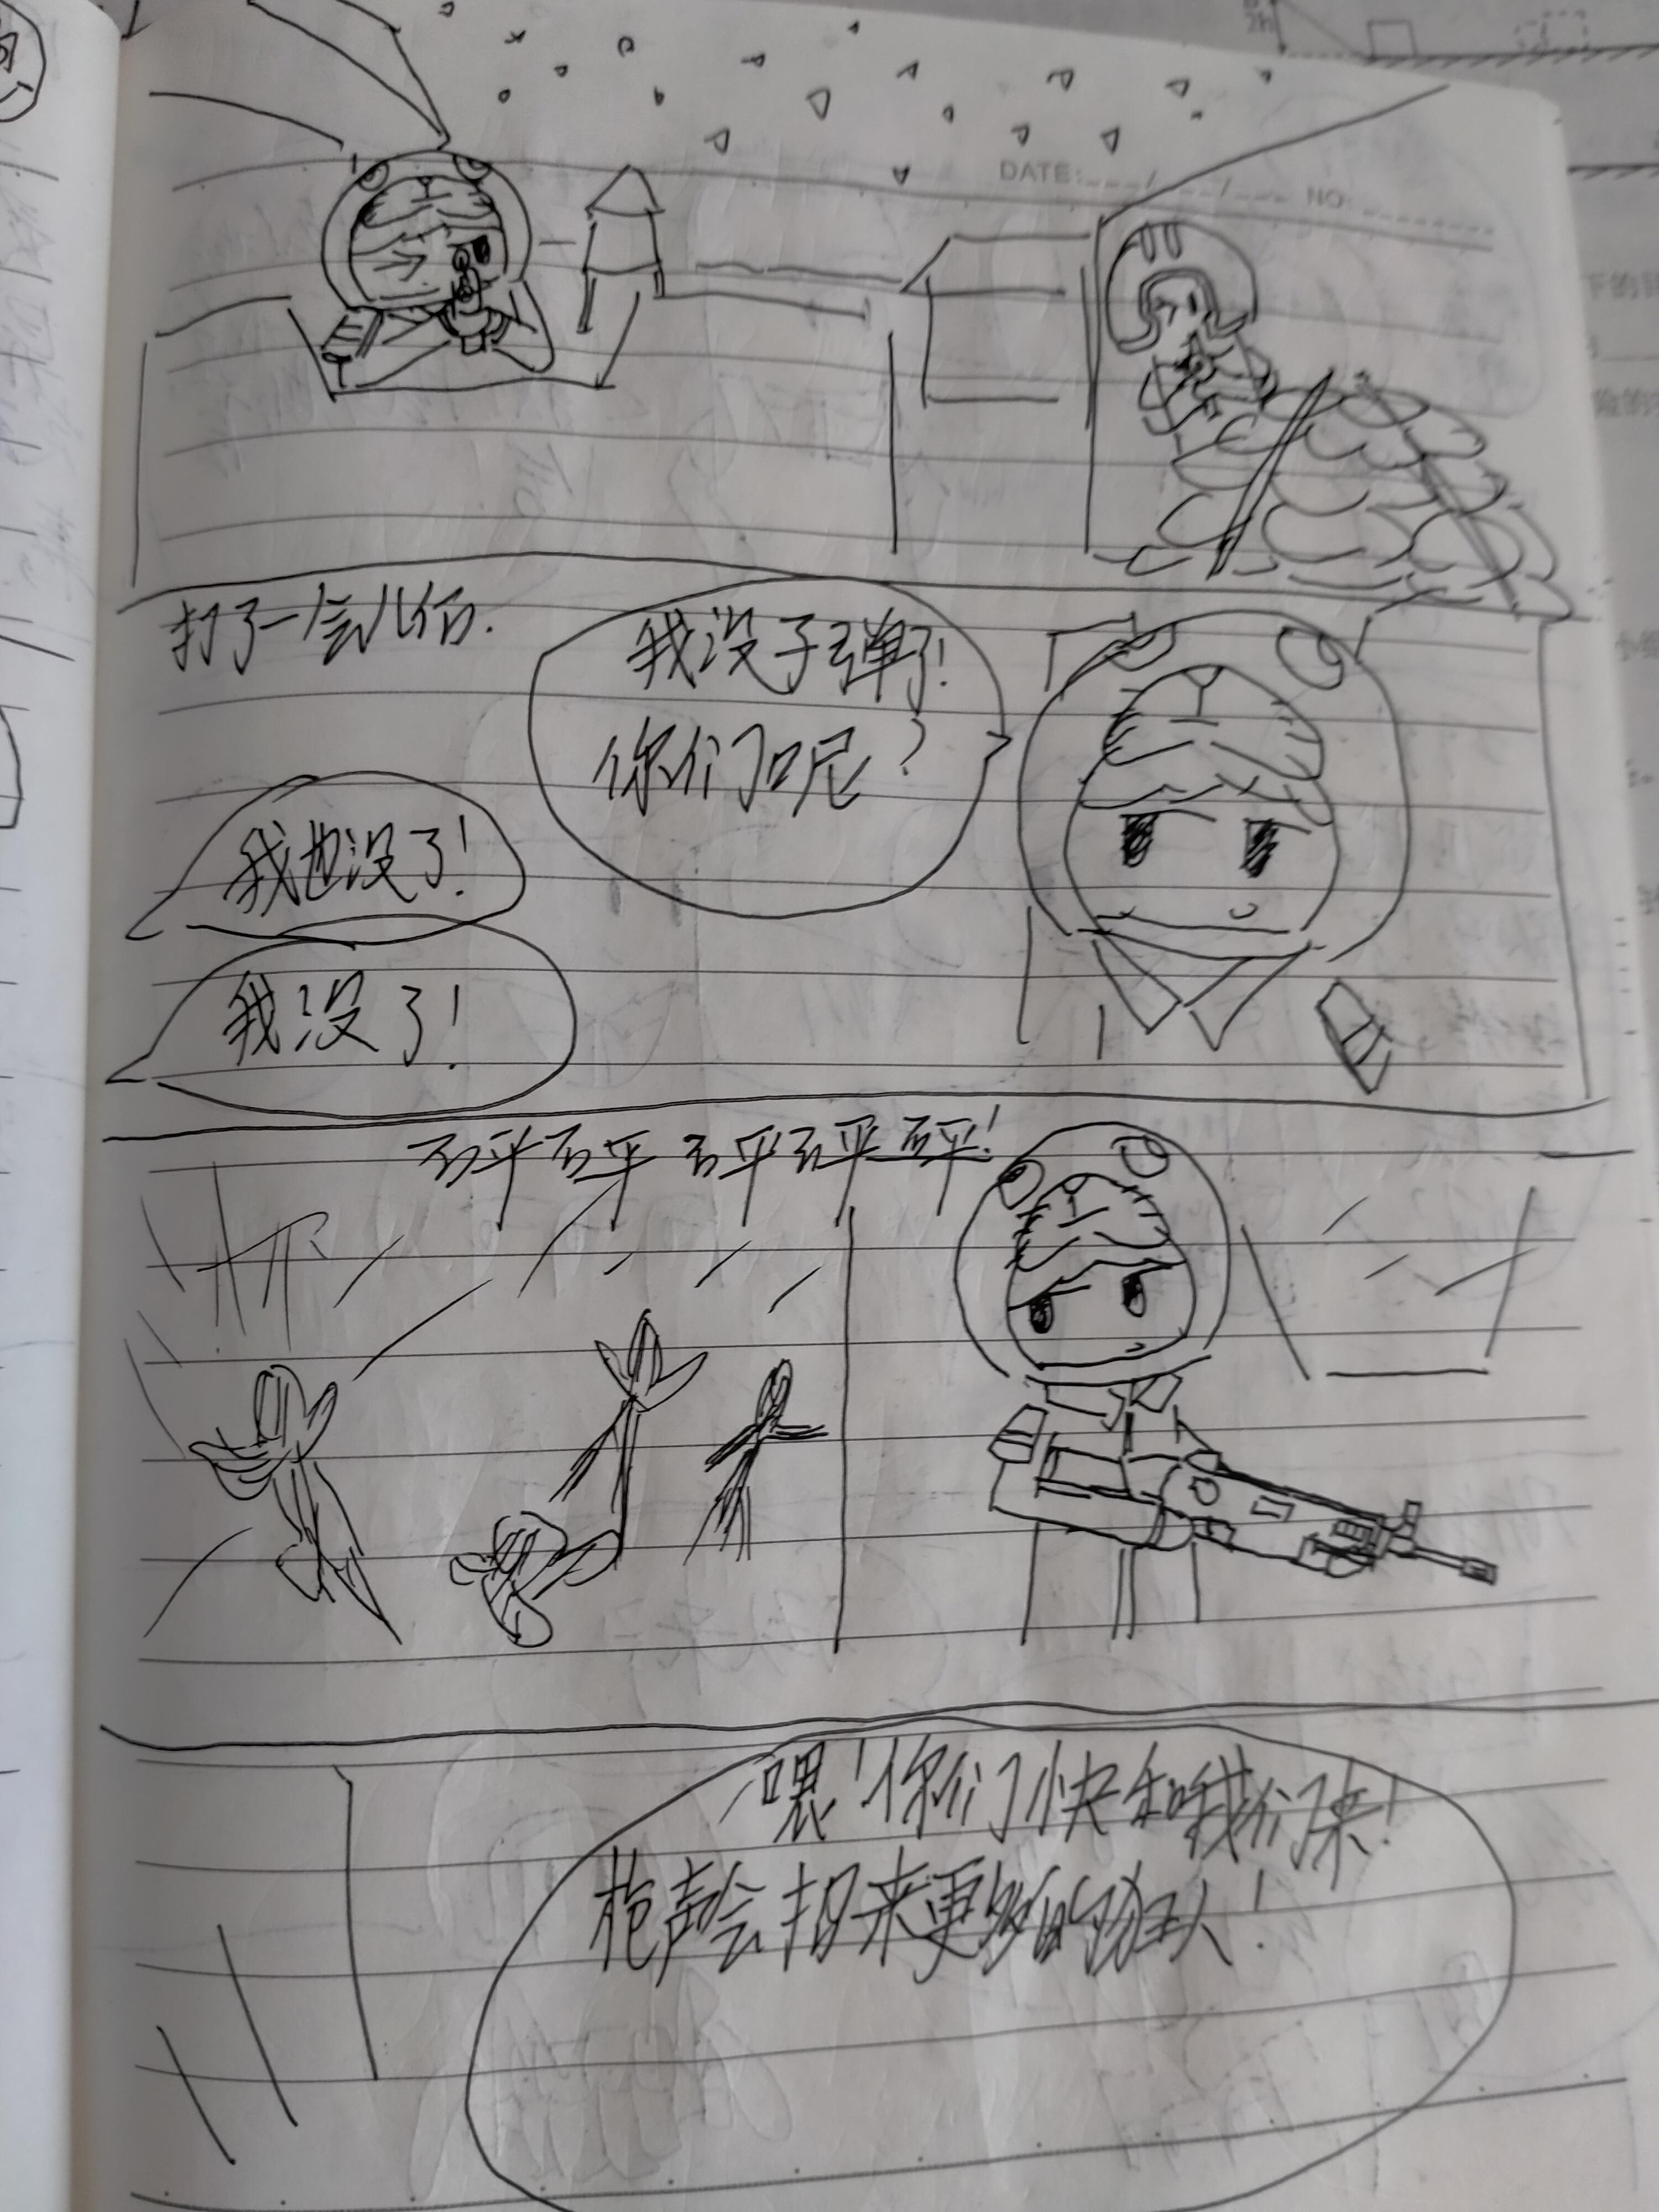 DATE: / / NO:
打了一会儿后.
我没子弹了!
你们呢?
我也没了!
我没了!
砰砰砰砰砰!
喂!你们快和我们来!
枪声会招来更多的狂人!
2h